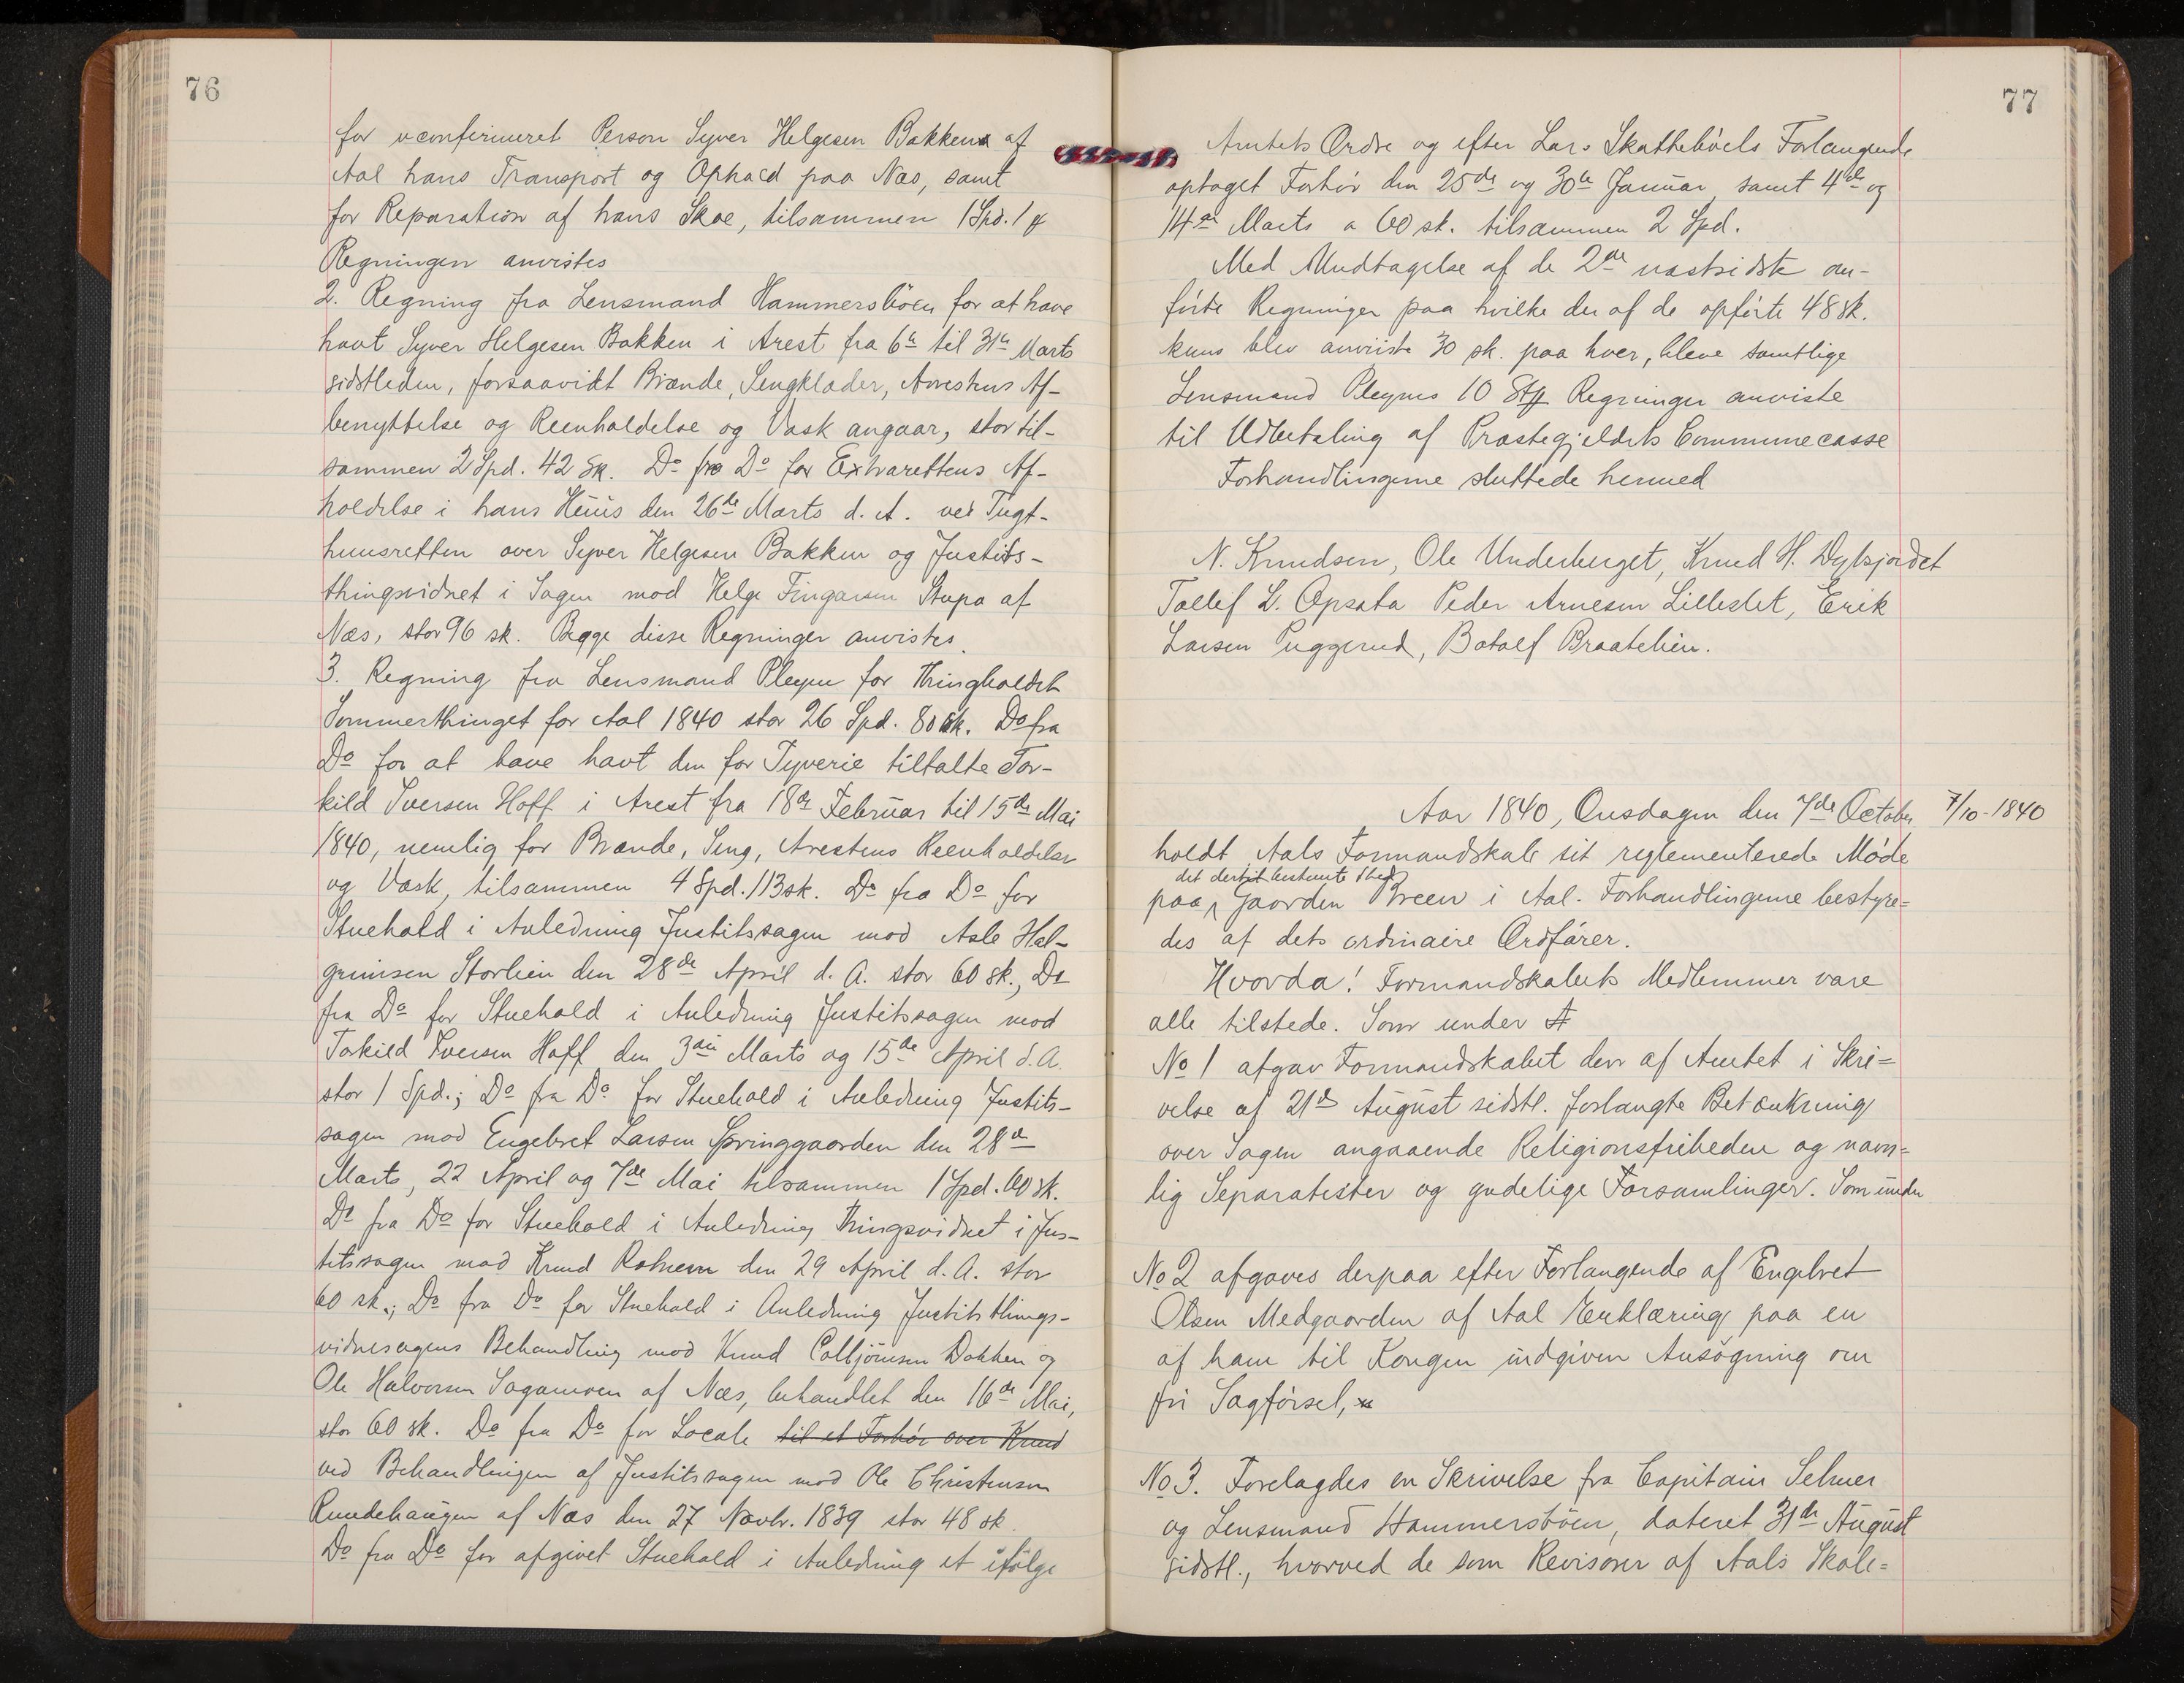 76
for uconfirmeret Person Syver Helgesen Bakken af
Aal hans Transport og Ophold paa Næs, samt
for Reparation af hans Skoe, tilsammen 1 Spd. 1
Regningen anvistes
2. Regning fra Lensmand Hammersbøen for at have
havt Syver Helgesen Bakken i Arest fra 6te til 31te Marts
sidstleden, forsaavidt Brænde, Sengklæder, Arrestens Af-
benyttelse og Reenholdelse og Vask angaar, stor til-
sammen 2 Spd. 42 sk. Do fra Do for Extrarettens Af-
holdelse i hans Huus den 26de Marts d. A. ved Tugt-
huusretten over Syver Helgesen Bakken og Justits-
thingsvidnet i Sagen mod Helge Fingarsen Stupa af
Næs, stor 96 sk. Begge disse Regninger anvistes.
3. Regning fra Lensmand Pleym for Thingholdet
Sommerthinget for Aal 1840 stor 26 Spd. 80 sk. Do fra
Do for at have havt den for Tyverie tiltalte Tor-
kild Iversen Hoff i Arest fra 18de Februar til 15de Mai
1840, nemlig for Brænde, Seng, Arestens Reenholdelse
og Vask, tilsammen 4 Spd. 113 sk. Do fra Do for
Stuehold i Anledning Justitssagen mod Asle Hal-
grimsen Storlien den 28de April d. A. stor 60 sk., Do
fra Do for Stuehold i Anledning Justitssagen mod
Torkild Iversen Hoff den 3die Marts og 15de April d. A.
stor 1 Spd.; Do fra Do for Stuehold i Anledning Justits-
sagen mod Engebret Larsen Springgaarden den 28de
Marts, 22 April og 7de Mai tilsammen 1 Spd. 60 sk.
Do fra Do for Stuehold i Anledning Thingsvidnet i Jus-
titssagen mod Knud den 29 April d. A. stor
60 sk.; Do fra Do for Stuehold i Anledning Justitsthings-
vidnesagens Behandling mod Knud Colbjörnsen Dokken og
Ole Halvorsen Sagamoen af Næs, behandlet den 16de Mai,
stor 60 sk. Do fra Do for Locale til et Forhör over Knud
ved Behandlingen af Justitssagen mod Ole Christensen
Rundehaugen af Næs den 27 Novbr. 1839 stor 48 sk.
Do fra Do for afgivet Stuehold i Anledning et ifølge
77
Amtets Ordre og efter Lars Skattebøels Forlangende
optaget Forhör den 25de og 30te Januar, samt 4de og
14de Marts a 60 sk. tilsammen 2 Spd.
Med Undtagelse af de 2de næstsidste an-
førte Regninger paa hvilke der af de opførte 48 sk.
kuns blev anviiste 30 sk. paa hver, bleve samtlige
Lensmand Pleyms 10 Stk Regninger anviste
til Udbetaling af Præstegjeldets Communecasse
Forhandlingerne sluttede hermed
N. Knudsen, Ole Underberget, Knud H. Dyksjordet
Tollef L. Opsata Peder Arnesen Lilleslet, Erik
Larsen Puggerud, Botolf Braatelien.
Aar 1840, Onsdagen den 7de October 7/10-1840
holdt Aals Formandskab sit reglementerede Møde
det dertil bestemte Sted
paa Gaarden Breen i Aal. Forhandlingerne bestyre=
des af dets ordinaire Ordfører.
Hvorda! Formandskabets Medlemmer vare
alle tilstede. Som under
No 1 afgav Formandskabet den af Amtet i Skri=
velse af 21de August sidstl. forlangte Betænkning
over Sagen angaaende Religionsfriheden og navn=
lig Separatister og gudelige Forsamlinger. Som under
No 2 afgaves derpaa efter Forlangende af Engebret
Olsen Medgaarden af Aal Erklæring paa en
af ham til Kongen indgiven Ansögning om
fri Sagførsel,
No 3. Forelagdes en Skrivelse fra Capitain Selmer
og Lensmand Hammersbøen, dateret 31te August
sidstl., hvorved de som Revisorer af Aals Skole=